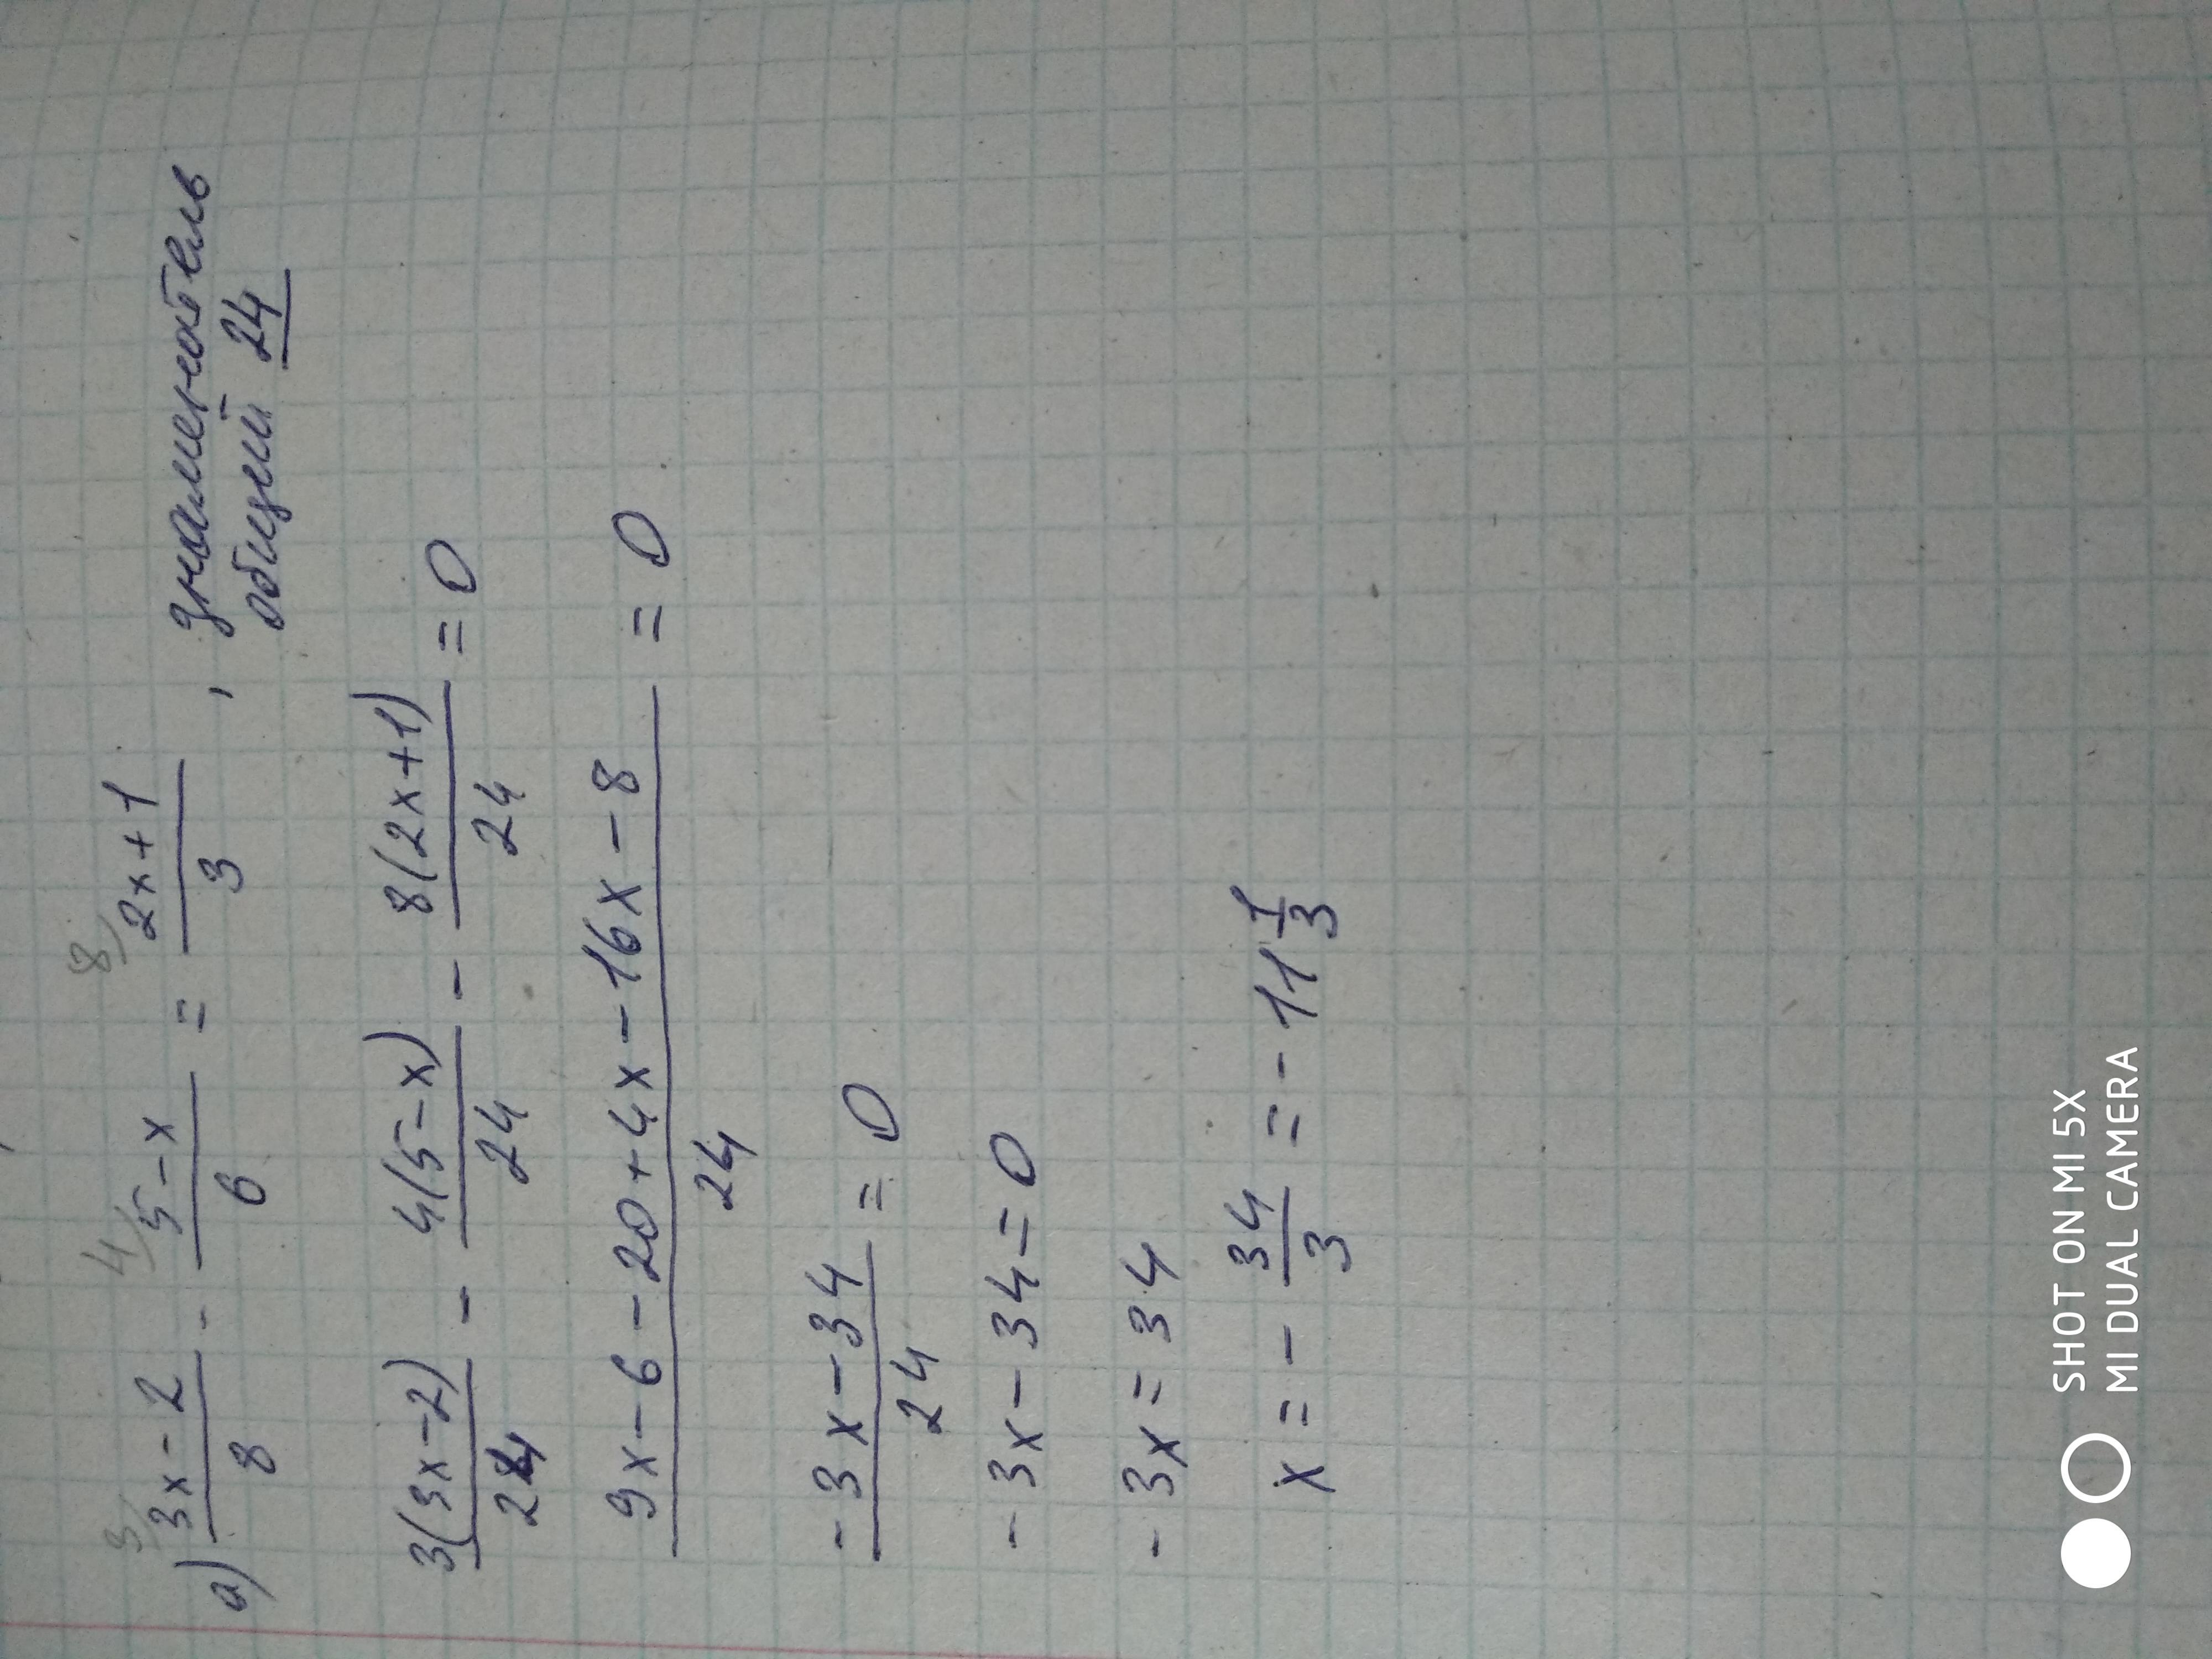 а) 3/ (3x-2)/8 - 4/ (5-x)/6 = 8/ (2x+1)/3 , знаменатель
общий 24
3(3x-2)/24 - 4(5-x)/24 - 8(2x+1)/24 = 0
(9x-6-20+4x-16x-8)/24 = 0
(-3x-34)/24 = 0
-3x-34=0
-3x=34
x=-34/3=-11 1/3
SHOT ON MI 5X
MI DUAL CAMERA